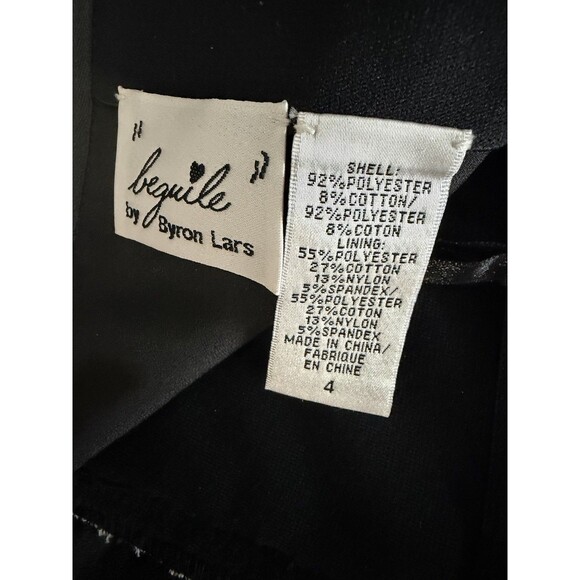 "beguile"
by Byron Lars
SHELL:
92%POLYESTER
8%COTTON/
92%POLYESTER
8%COTON
LINING:
55%POLYESTER
27%COTTON
13%NYLON
5%SPANDEX/
55%POLYESTER
27%COTON
13%NYLON
5%SPANDEX
MADE IN CHINA/
FABRIQUE
EN CHINE
4